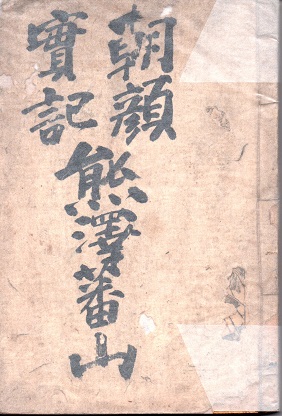 朝顔
實記
熊澤蕃山